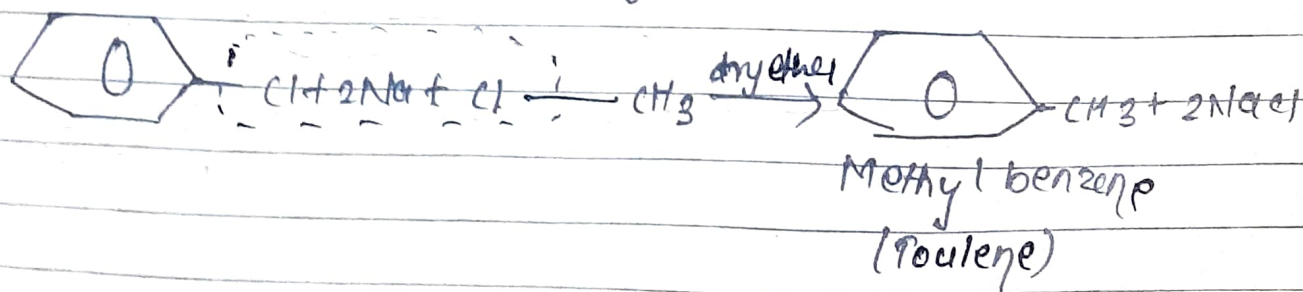 Cl + 2Na + Cl — CH3 dry ether → CH3 + 2NaCl
Methyl benzene
(Toulene)